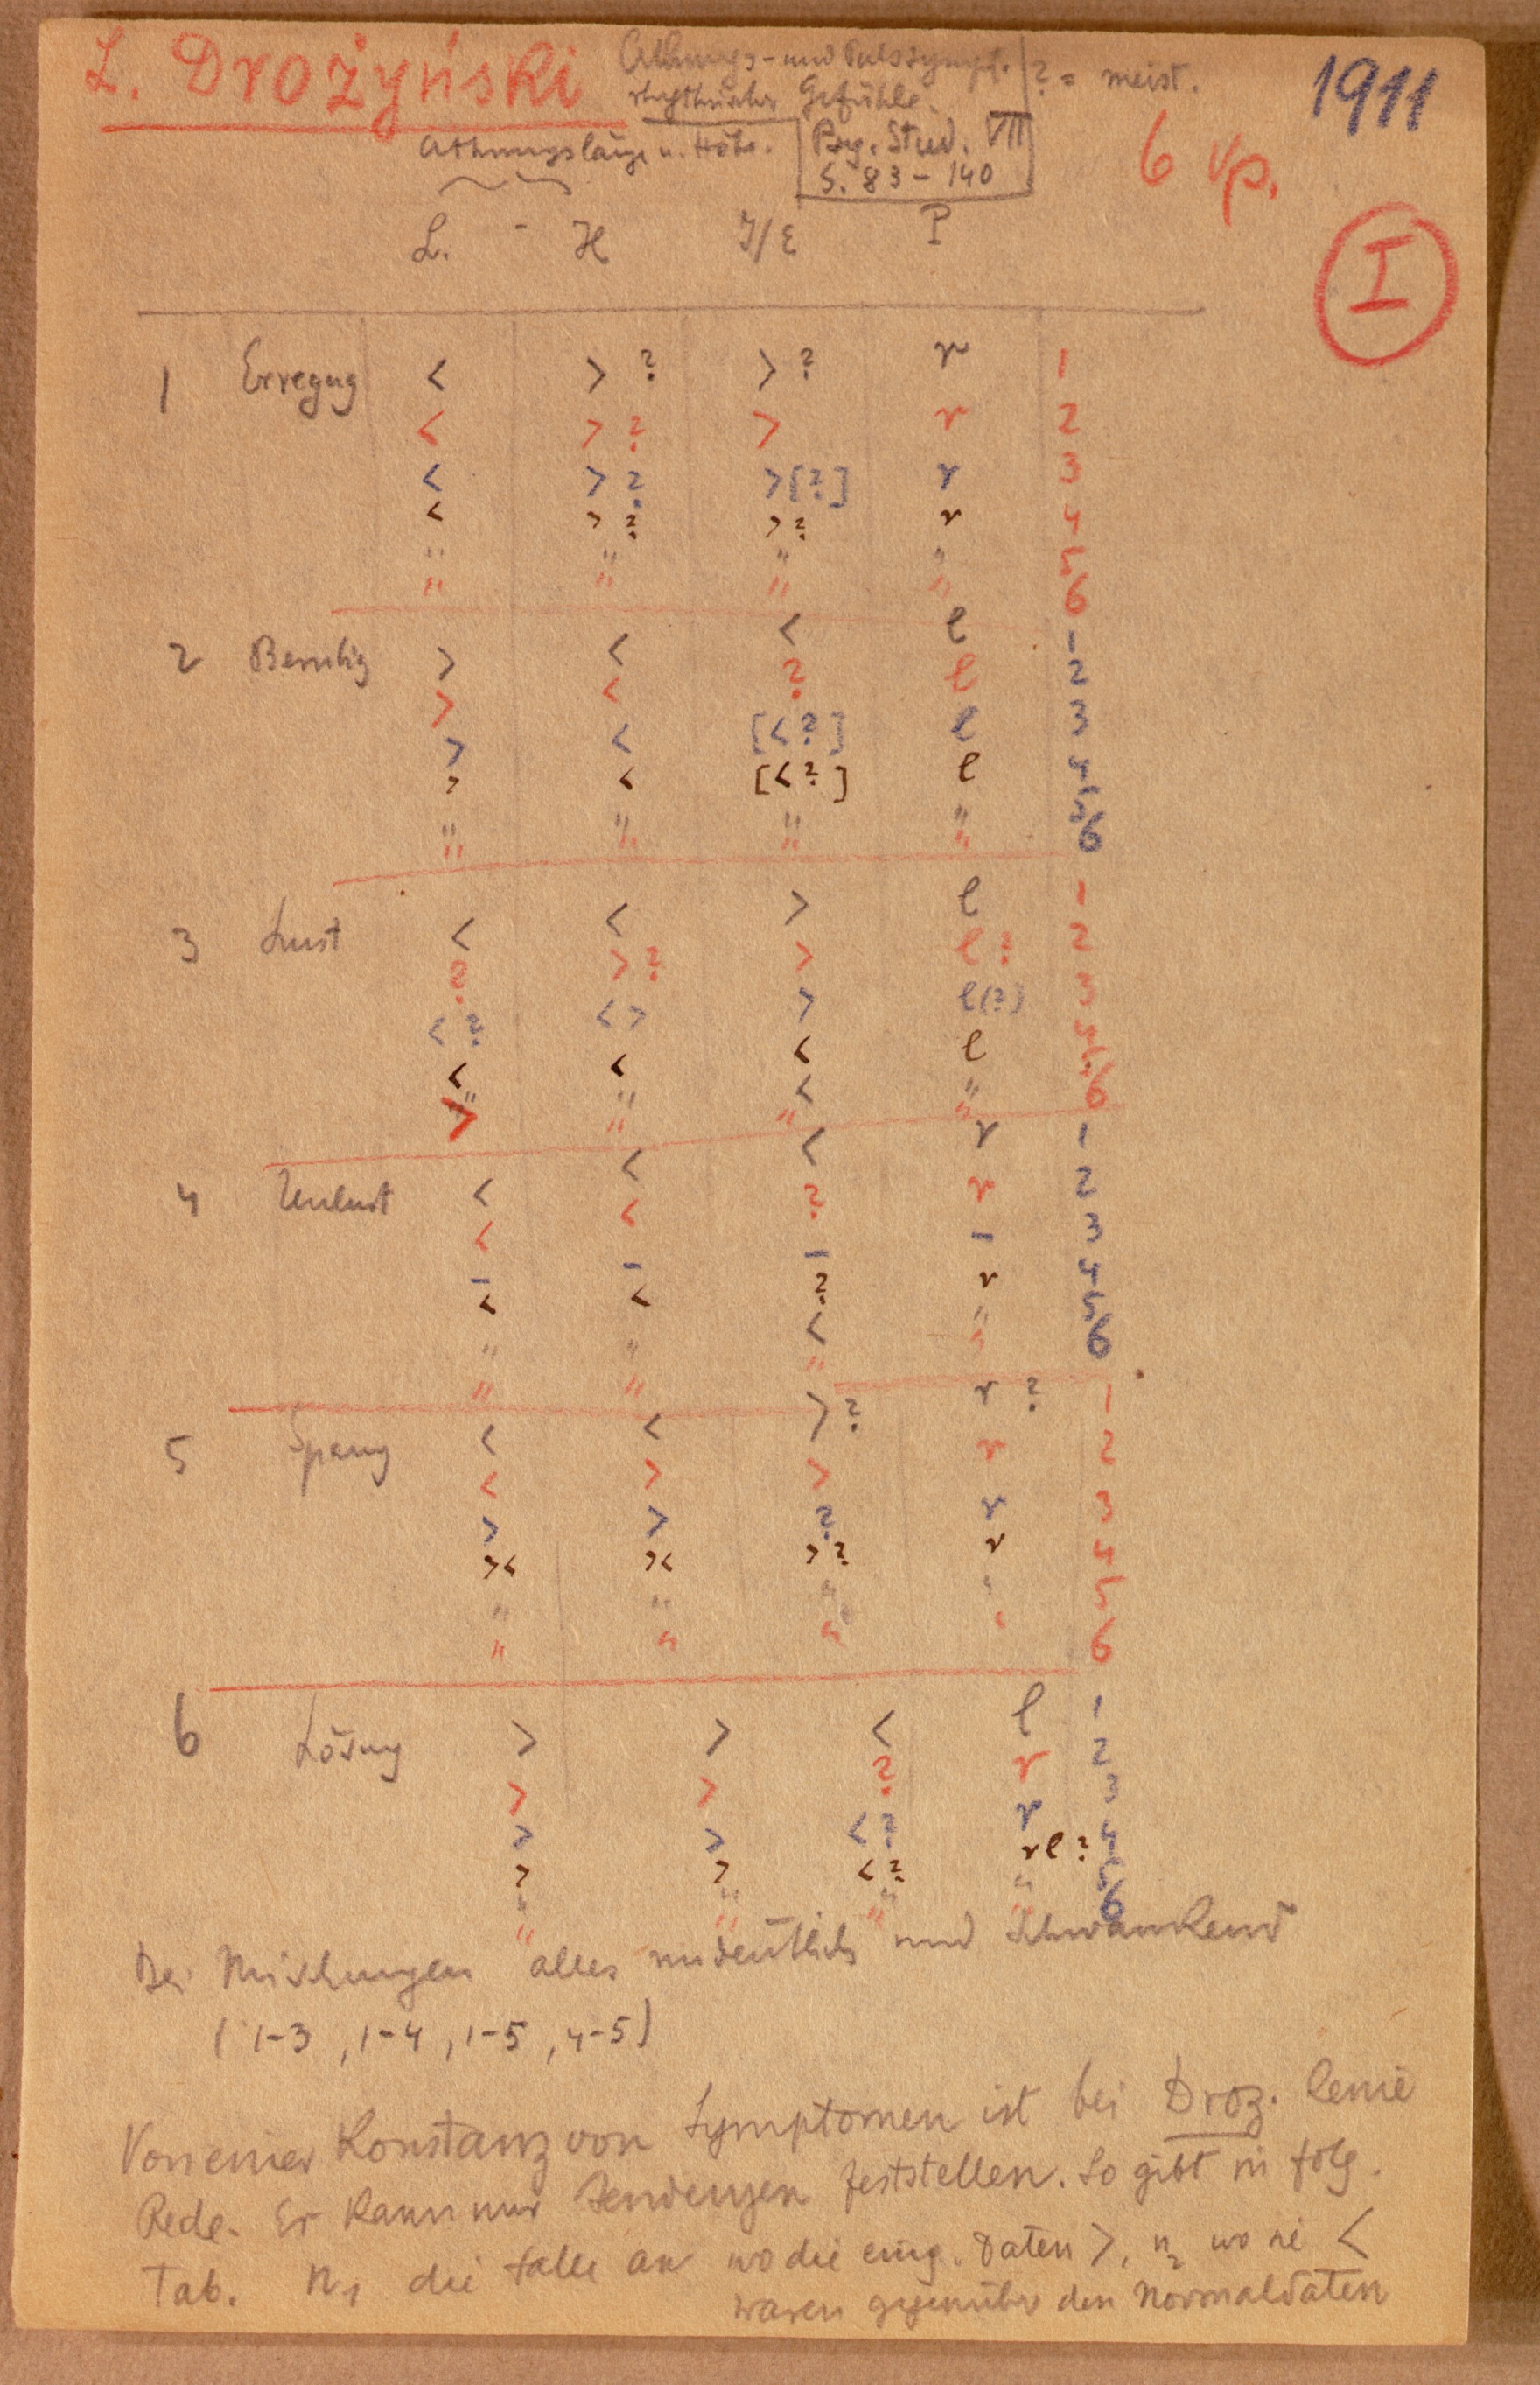 L. Drożyński Athmungs- und Pulssympt. ? = meist. 1911
rhythmischer Gefühle.
Athmungslänge u. Höhe. Psy. Stud. VII 6 Vp.
S. 83 - 140
L. - H J/E P I
1 Erregug < > ? > ? r 1
< > ? > r 2
< > ? > [?] r 3
< > ? > ? r 4
" " " " 5
" " " " 6
2 Beruhig > < < l 1
> < ? l 2
> < [< ?] l 3
> < [< ?] l 4
" " " " 5
" " " " 6
3 Lust < < > l 1
? > ? > l ? 2
< ? < > > l (?) 3
< < < l 4
" " < " 5
> " " " 6
4 Unlust < < < r 1
< < ? r 2
- - - - 3
< < ? r 4
" " < " 5
" " " " 6
5 Spanug < < > ? r ? 1
< > > r 2
> > ? r 3
> < > < > ? r 4
" " " " 5
" " " " 6
6 Lösung > > < l 1
> > ? r 2
> > < ? r 3
> > < ? r l ? 4
" " " " 5
" " " " 6
Bei Mischungen alles undeutlich und schwankend
(1-3, 1-4, 1-5, 4-5)
Von einer Konstanz von Symptomen ist bei Droz. keine
Rede. Er kann nur Tendenzen feststellen. So gibt in folg.
Tab. n1 die Fälle an wo die eing. Daten >, n2 wo sie <
waren gegenüber den Normaldaten